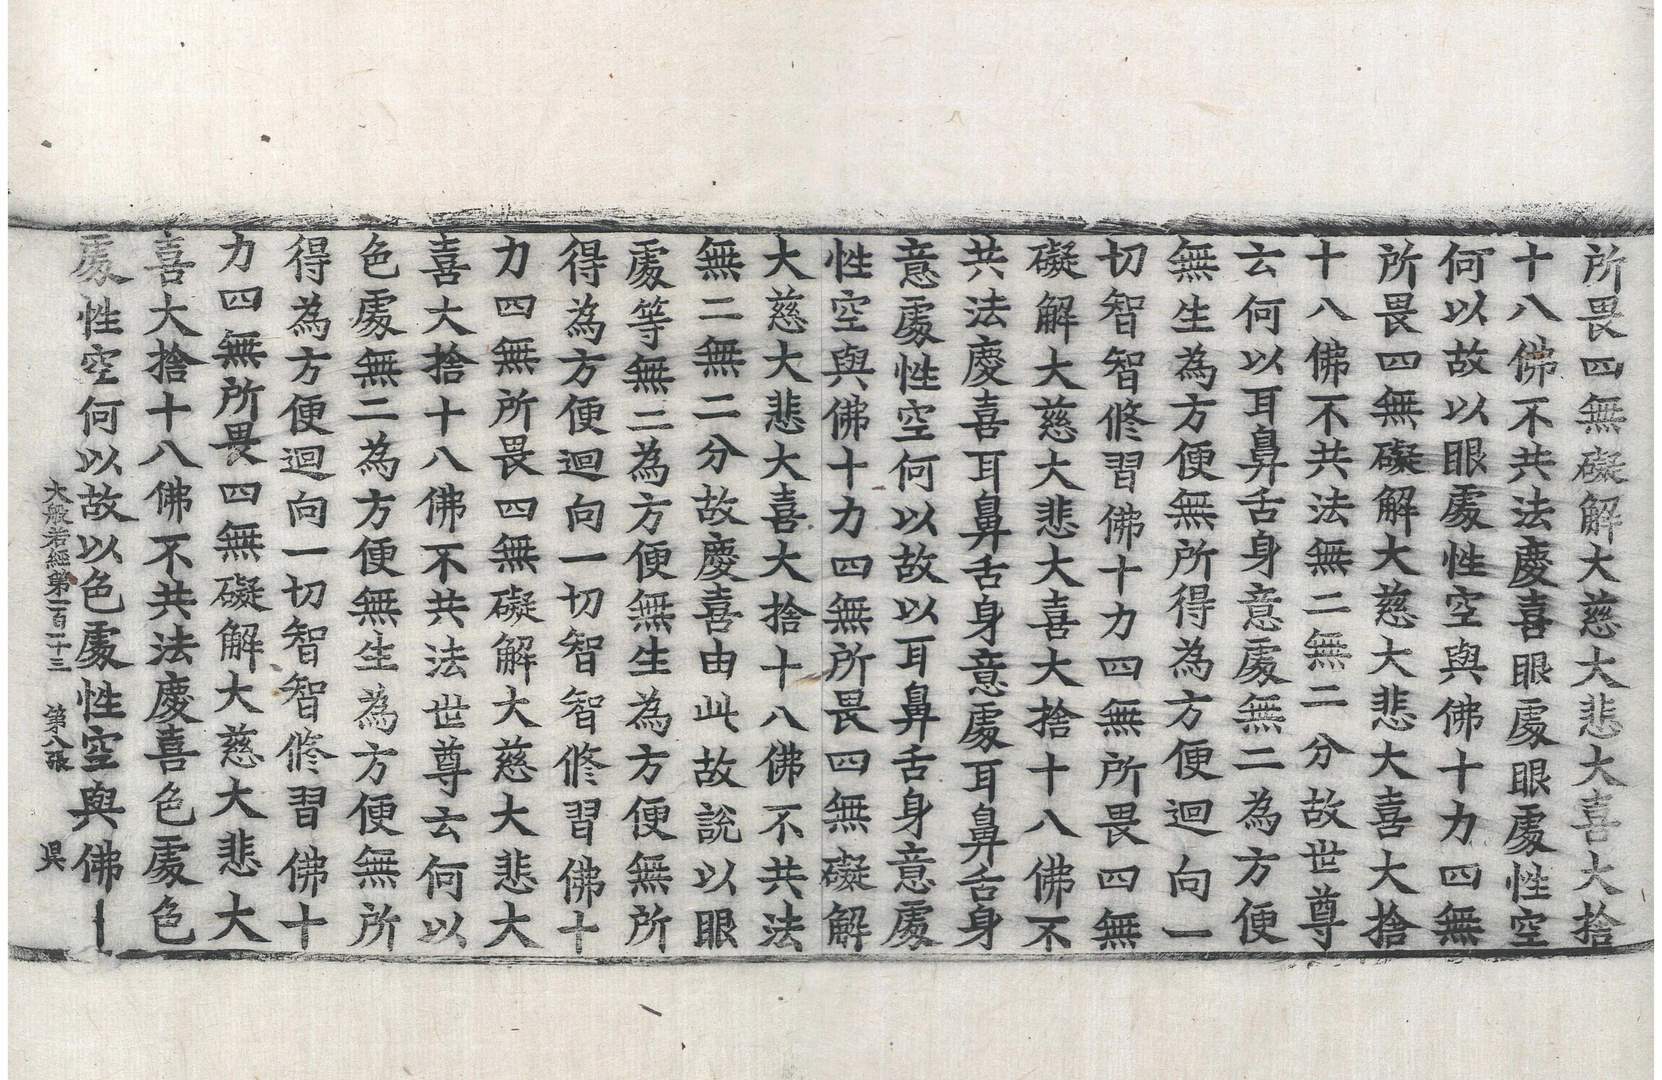 所畏四無礙解大慈大悲大喜大捨
十八佛不共法慶喜眼處眼處性空
何以故以眼處性空與佛十力四無
所畏四無礙解大慈大悲大喜大捨
十八佛不共法無二無二分故世尊
云何以耳鼻舌身意處無二為方便
無生為方便無所得為方便迴向一
切智智修習佛十力四無所畏四無
礙解大慈大悲大喜大捨十八佛不
共法慶喜耳鼻舌身意處耳鼻舌身
意處性空何以故以耳鼻舌身意處
性空與佛十力四無所畏四無礙解
大慈大悲大喜大捨十八佛不共法
無二無二分故慶喜由此故說以眼
處等無二為方便無生為方便無所
得為方便迴向一切智智修習佛十
力四無所畏四無礙解大慈大悲大
喜大捨十八佛不共法世尊云何以
色處無二為方便無生為方便無所
得為方便迴向一切智智修習佛十
力四無所畏四無礙解大慈大悲大
喜大捨十八佛不共法慶喜色處色
處性空何以故以色處性空與佛十
大般若經第一百二十三 第八張 吳